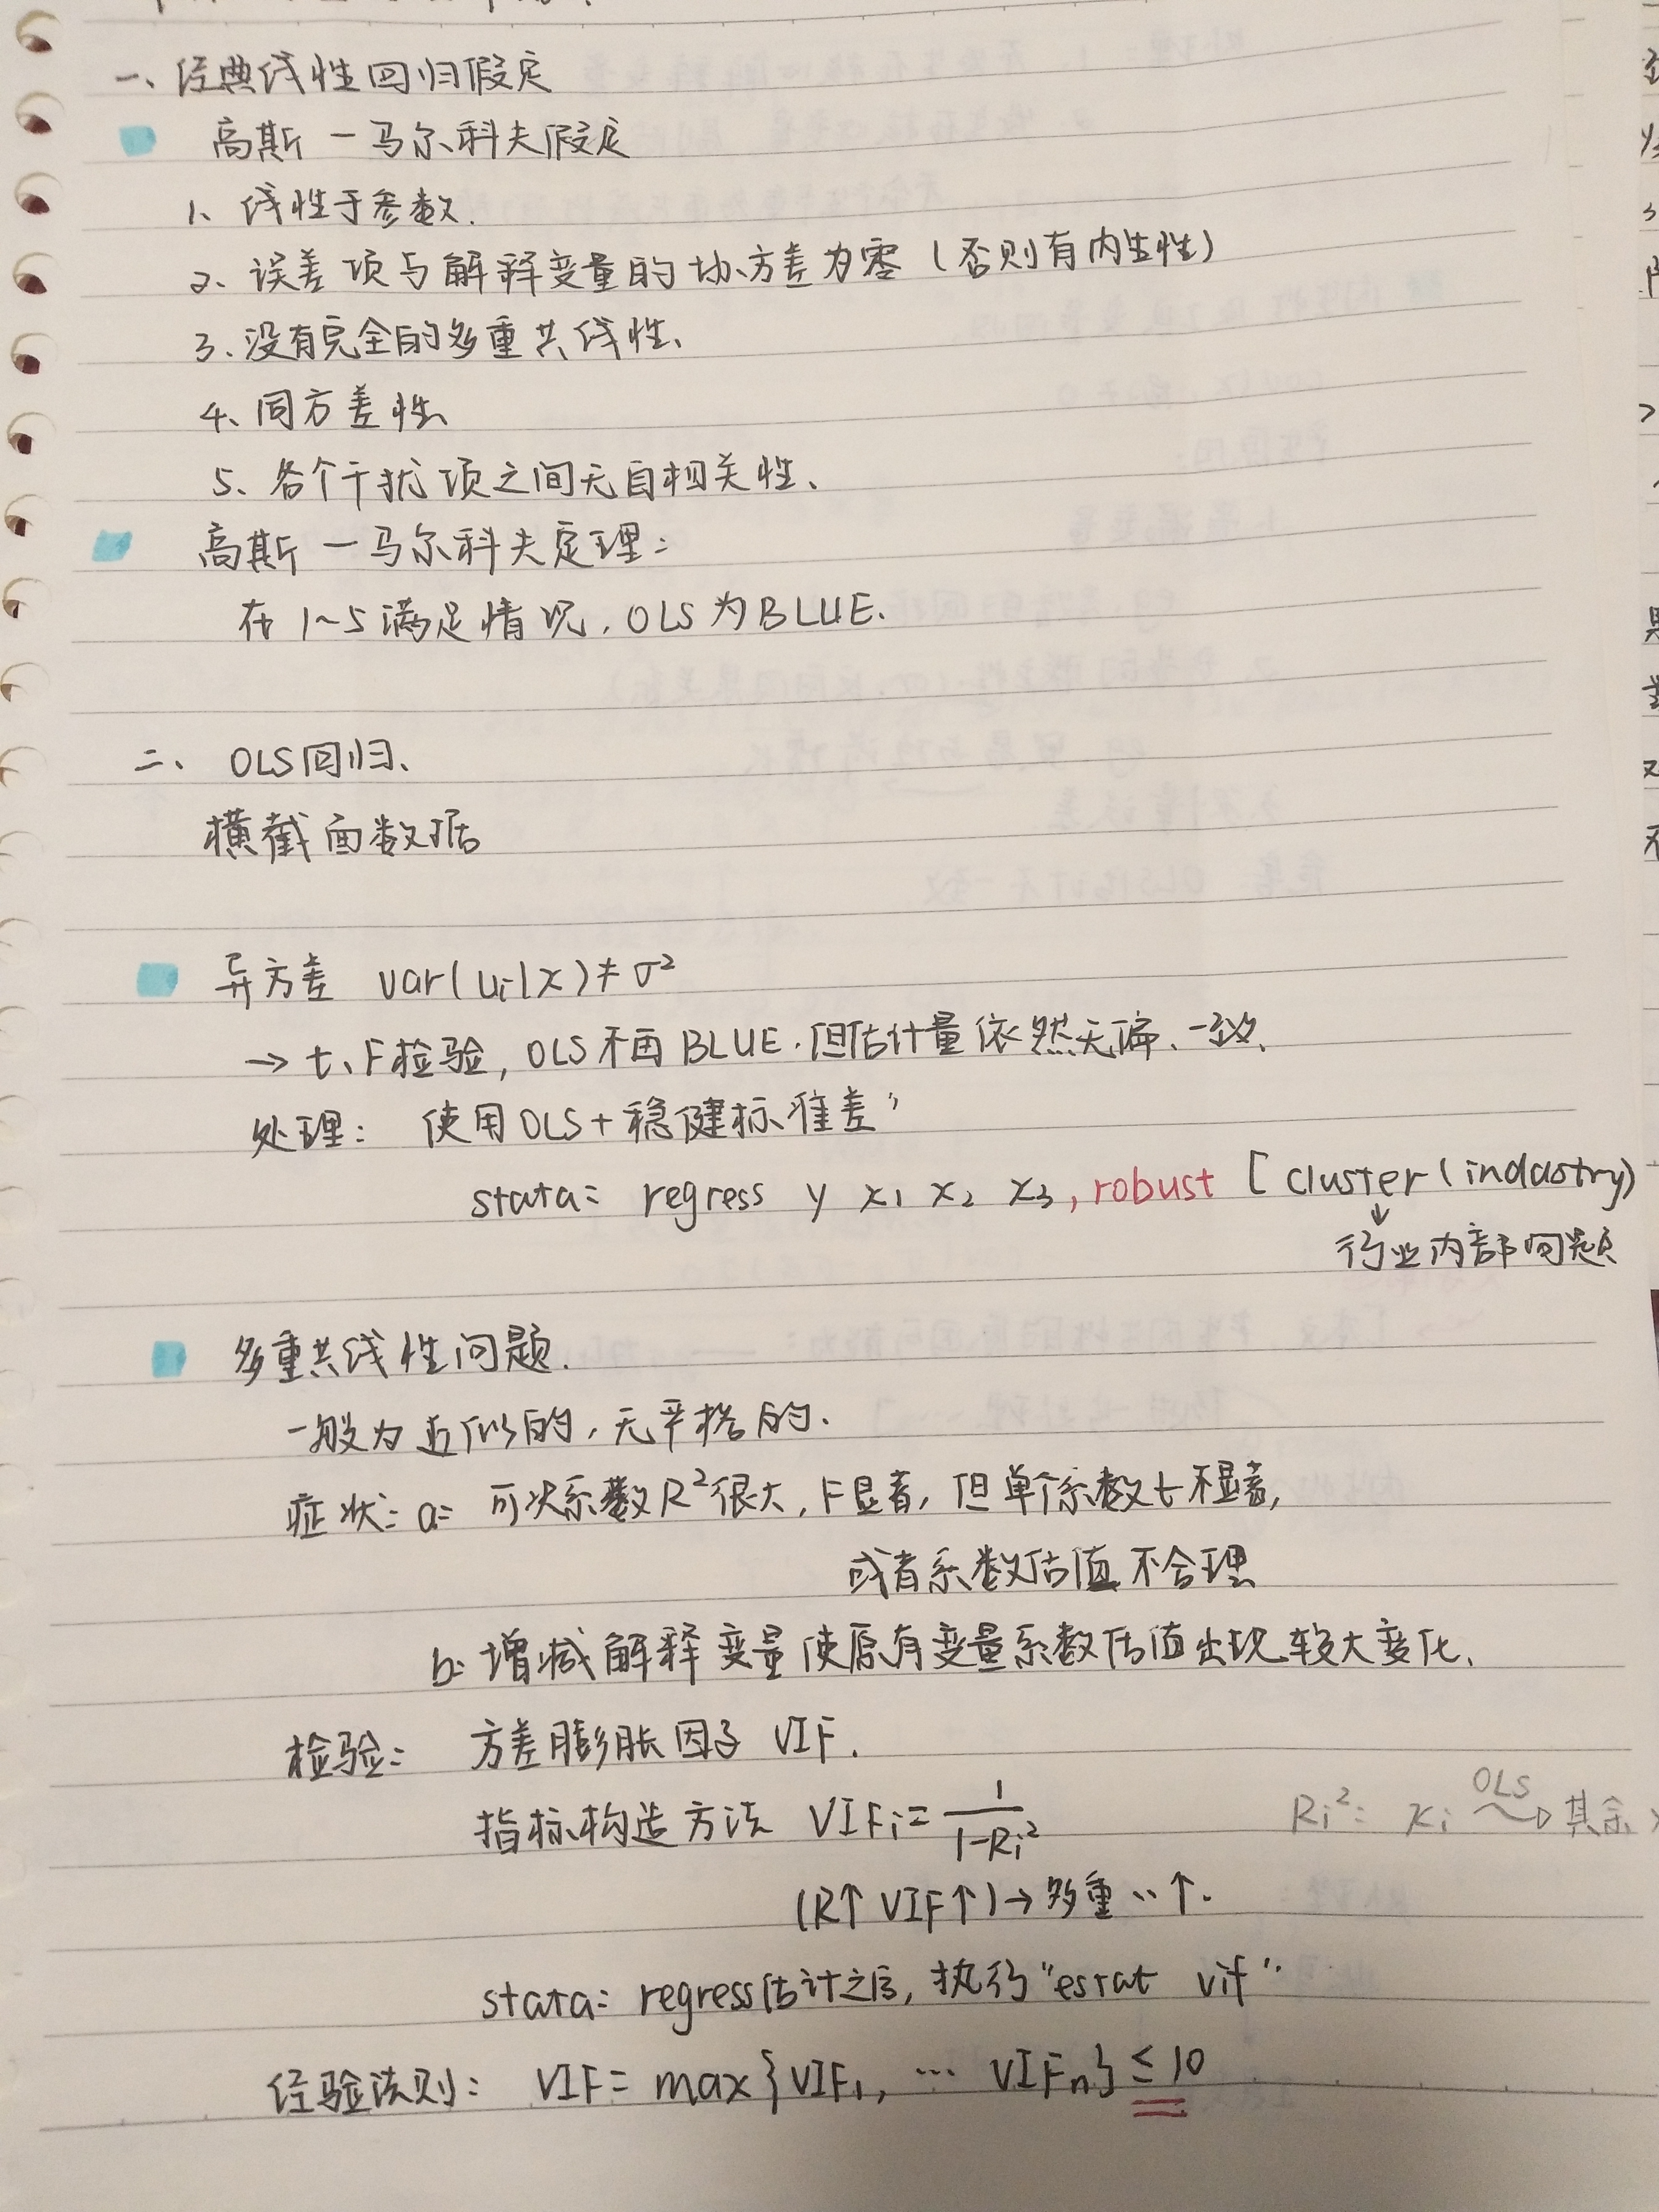 一、经典线性回归假定
高斯－马尔科夫假定
1、线性于参数.
2、误差项与解释变量的协方差为零(否则有内生性)
3、没有完全的多重共线性、
4、同方差性、
5、各个干扰项之间无自相关性、
高斯－马尔科夫定理:
在1~5满足情况，OLS为BLUE.
二、OLS回归、
横截面数据
异方差 var(ui|x)≠σ²
→ t、F检验, OLS不再BLUE.但估计量依然无偏、一致、
处理: 使用OLS+稳健标准差"
stata: regress y x₁ x₂ x₃, robust [cluster(indastry)
↓
行业内部问题
多重共线性问题.
一般为近似的，无严格的.
症状: a: 可决系数R²很大, F显著, 但单个系数t不显著,
或者系数估值不合理
b: 增减解释变量使原有变量系数估值出现较大变化、
检验: 方差膨胀因子 VIF.
指标构造方法 VIFᵢ= 1/(1-Rᵢ²) Rᵢ²: xᵢ OLS→ 其余
(R↑ VIF↑)→多重..↑.
stata: regress估计之后, 执行"estat vif"
经验法则: VIF= max{VIF₁, … VIFₙ} ≤ 10